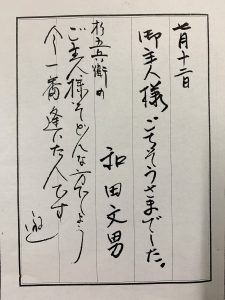 七月十二日
御主人様ごちそうさまでした。
和田文男
杉五兵衛の
ご主人様そどんな方でしょう
今一番逢いたい人です